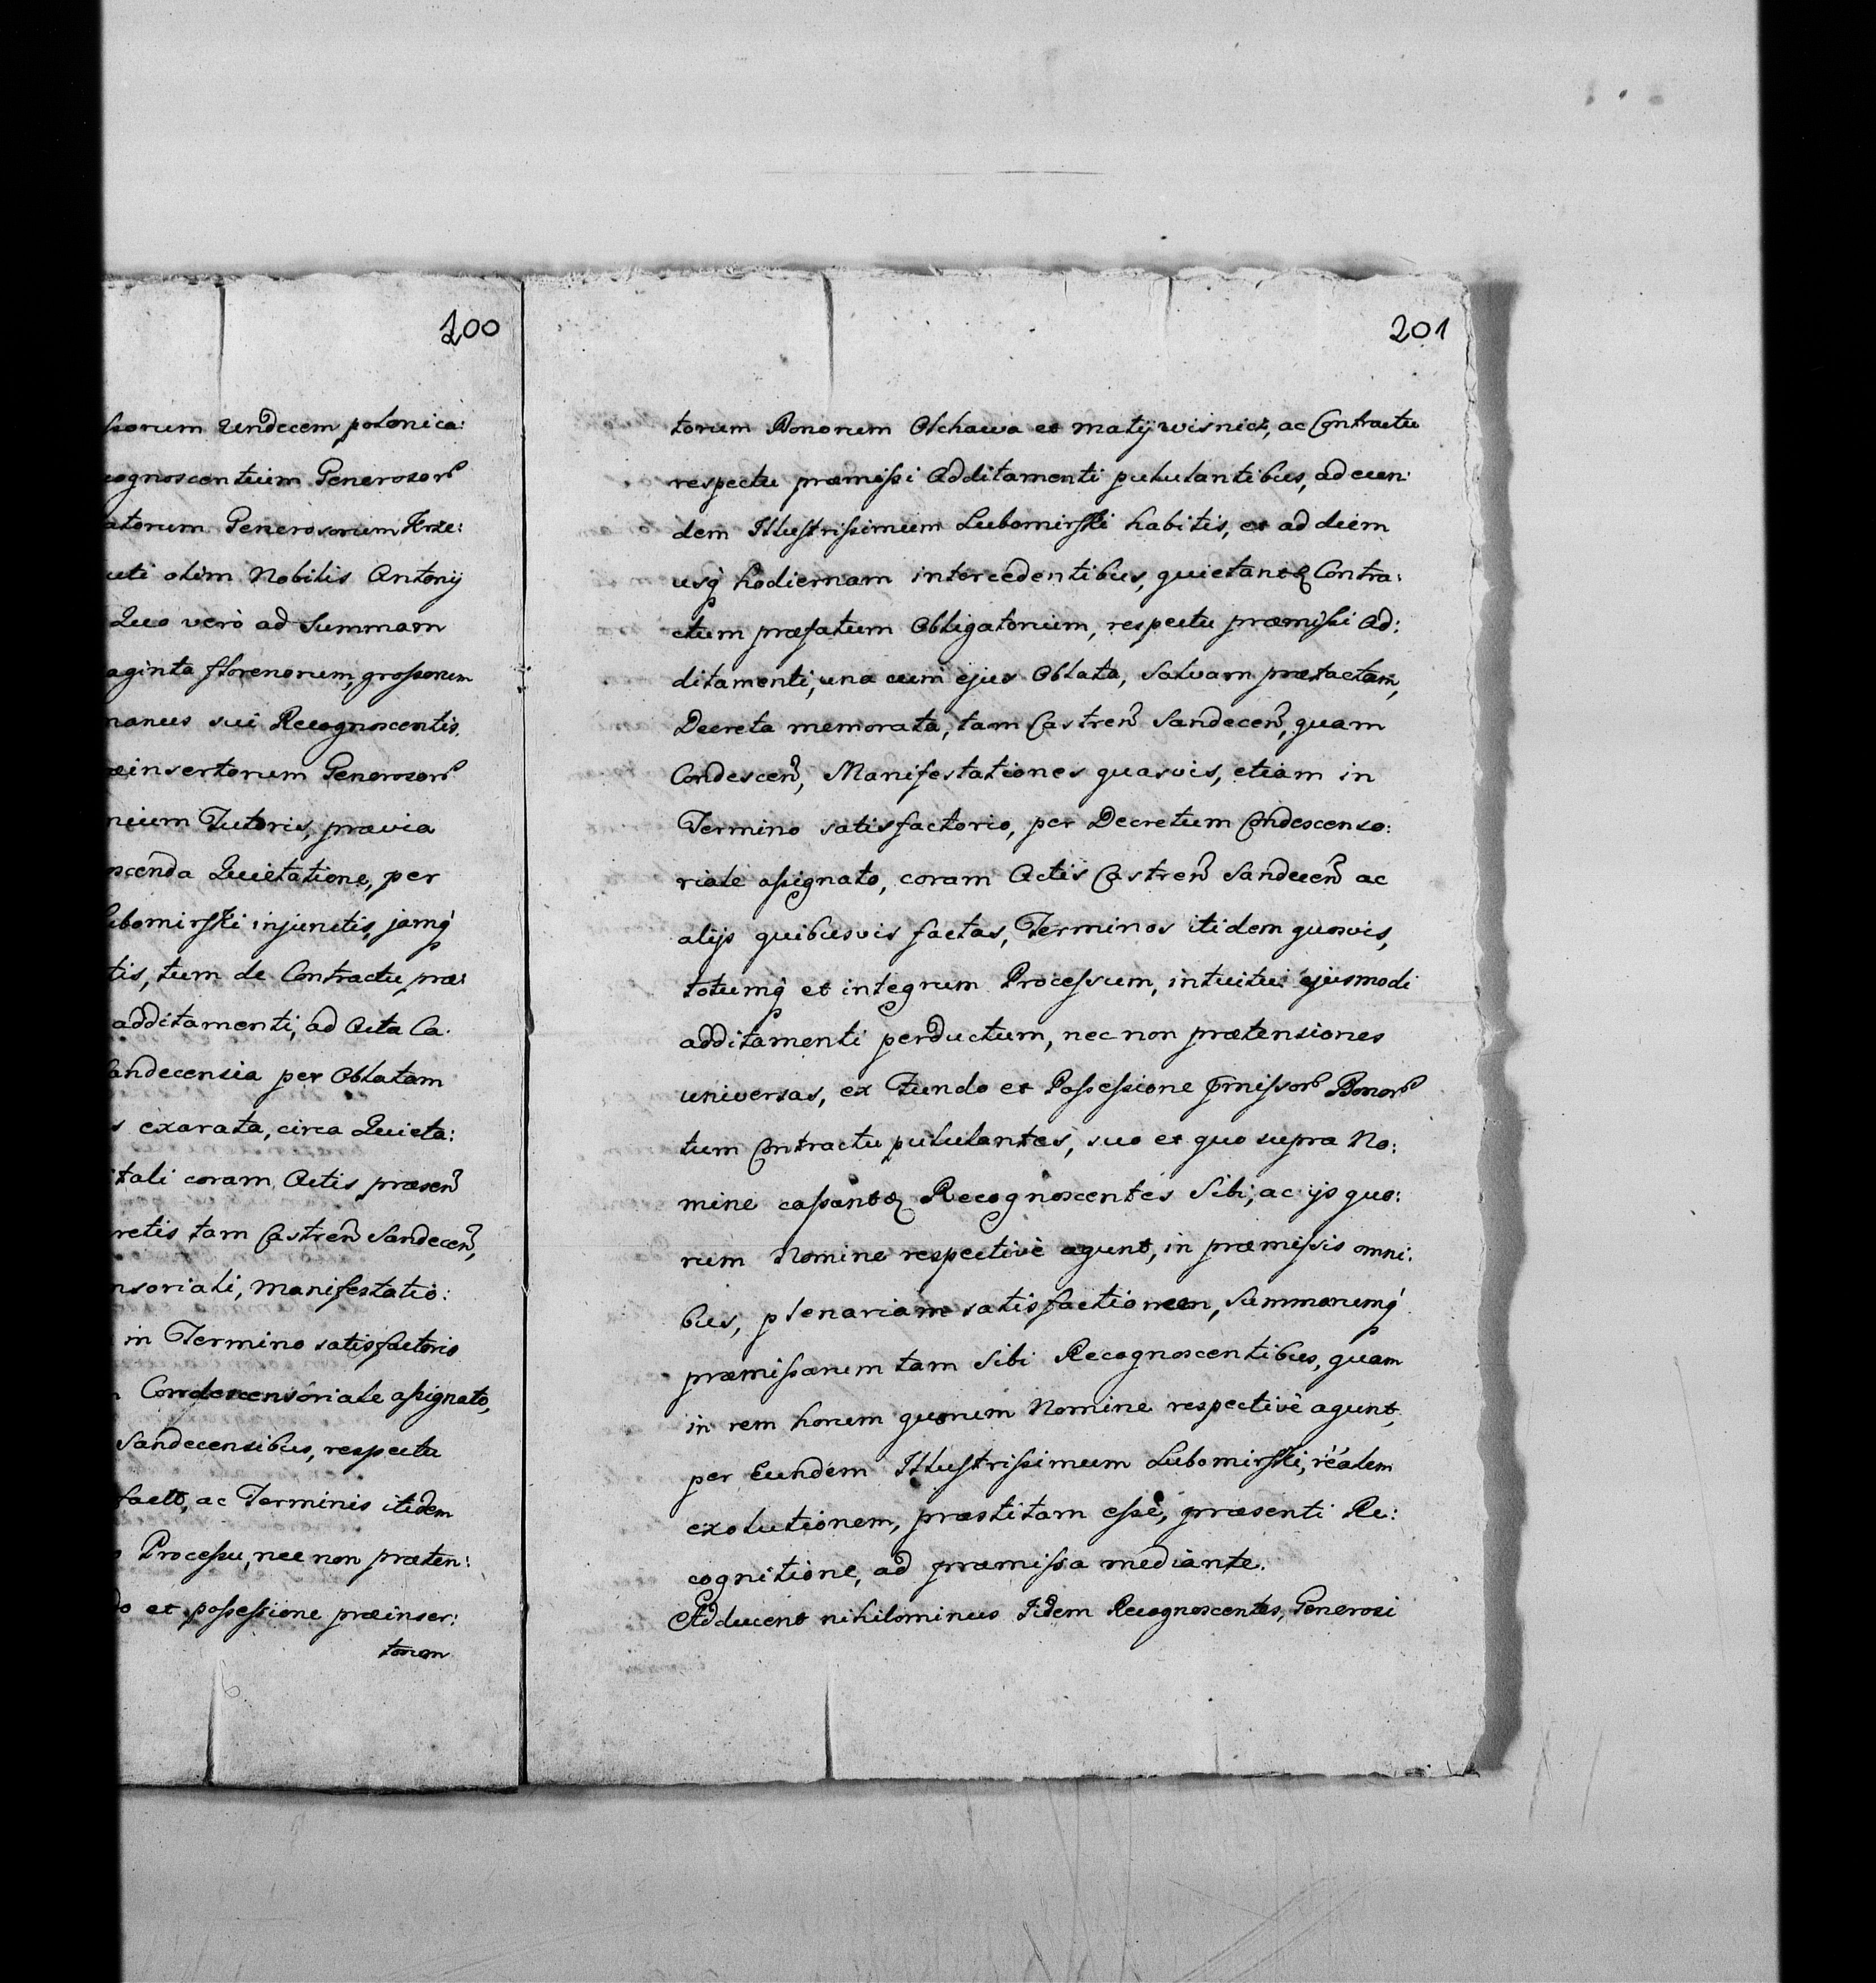 200
ssorum Undecem polonica:
cognoscentium Generosor
atorum Generosorum Krze:
uti olim Nobilis Antonij
Quo verò ad Summam
aginta florenorum, grossorum
manus sui Recognoscentis.
æinsertorum Generosor
nium Tutoris, prævia
scenda Quietatione, per
ubomirski injunctis, jamq́
tis, tum de Contractu præ:
additamenti, ad Acta Ca:
andecensia per Oblatam
s exarata, circa Quieta:
tali coram Actis præsen
retis tam Castren Sandecen,
nsoriali, Manifestatio:
in Termino satisfactorio
Condescensoriale assignato,
Sandecensibus, respectu
fact, ac Terminis itidem
Processu, nec non præten:
do et possessione præinser:
torum
201
torum Bonorum Olchawa et Matÿ wisnicz, ac Contractu
respectu præmissi Additamenti pululantibus, ad eun:
dem Illustrissimum Lubomirski habitis, et ad diem
usq́ hodiernam intercedentibus, quietantq Contra:
ctum præfatum Obligatorium, respectu præmissi Ad:
ditamenti, una cum ejus Oblata, Salvam prætactam,
Decreta memorata, tam Castren Sandecen, quam
Condescen, Manifestationes quasvis, etiam in
Termino satisfactorio, per Decretum Condescenso:
riale assignato, coram Actis Castren Sandecen ac
alijs quibusvis factas, Terminos itidem quosvis,
totumq́ et integrum Processum, intuitu ejusmodi
additamenti perductum, nec non prætensiones
universas, ex Fundo et Possessione pmissor Bonor
tum Contractu pululantes, suo et quo supra No:
mine cassantq Recognoscentes Sibi, ac ijs quo:
rum Nomine respectivè agunt, in præmissis omni:
bus, plenariam satisfactionem, Summarumq́
præmissarum tam Sibi Recognoscentibus, quam
in rem horum quorum Nomine respectivè agunt,
per Eundem Illustrissimum Lubomirski, réalem
exolutionem, præstitam esse, præsenti Re:
cognitione, ad præmissa mediante.
Adducent nihilominus Iidem Recognoscentes, Generosi